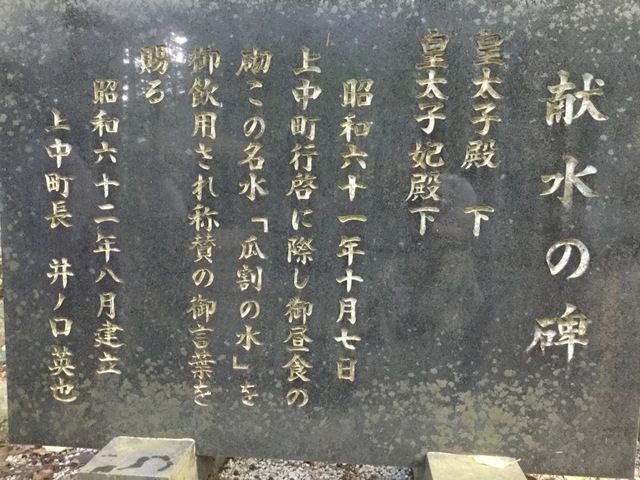 献水の碑
皇太子殿　下
皇太子妃殿下
昭和六十一年十月七日
上中町行啓に際し御昼食の
砌この名水「瓜割の水」を
御飲用され称賛の御言葉を
賜る
昭和六十二年八月建立
上中町長　井ノ口英也